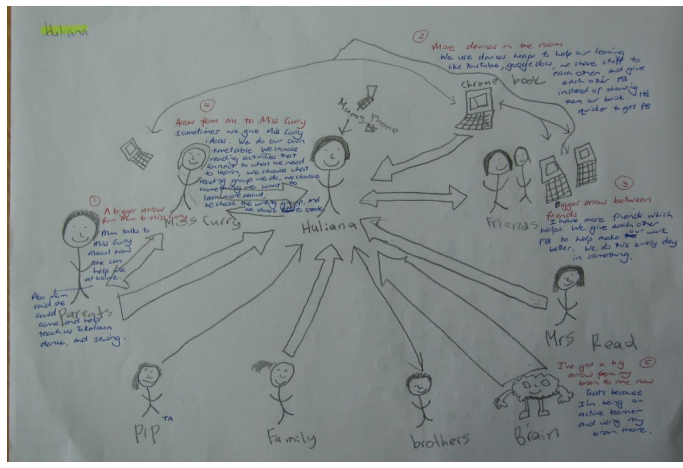 Huliana
②
More devices in the room
We use devices heaps to help our learning
like YouTube, google docs, we share stuff to
each other and give
each other FB
instead of showing
them our book. It's
quicker to get FB
Chrome book
Mums Phone
FB
④
Arrow from me to Miss Curry
sometimes we give Miss Curry
ideas. We do our own
timetable. We choose
reading activities that
connect to what we need
to learn, we choose what
reading group we do, we choose
something we want to
learn more about,
we choose the writing group, and
Miss Curry
Huliana
Friends
③
Bigger arrow between
friends
I have more friends which
helps. We give each other
FB to help make our work
better. We do this every day
in something.
①
A bigger arrow
from Mum to Miss Curry
Mum talks to
Miss Curry
About how
she can
help me
at home.
Also mum
said she
could
come and help
teach us Tokelauan
dance, and sewing.
Parents
Mrs Read
⑤
I've got a big
arrow from my
brain to me now
That's because
I'm being an
active learner
and using my
brain more.
PrP TA
Family
brothers
Brain